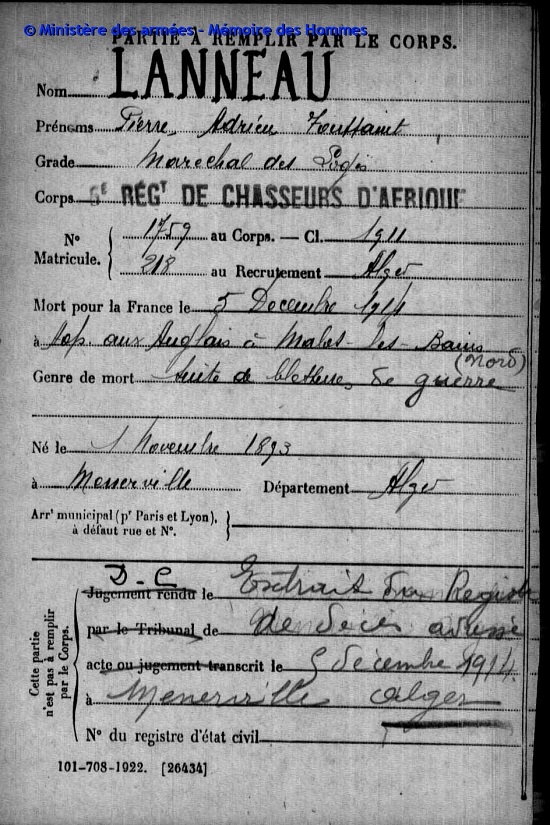 © Ministère des armées - Mémoire des Hommes
PARTIE À REMPLIR PAR LE CORPS.
Nom LANNEAU
Prénoms Pierre, Adrien Toussaint
Grade Maréchal des Logis
Corps 6e RÉGT DE CHASSEURS D'AFRIQUE
N° Matricule. 1759 au Corps. — Cl. 1911
218 au Recrutement Alger
Mort pour la France le 5 Décembre 1914
à hop aux Anglais à Malo-les-Bains
(Nord)
Genre de mort Suite de blessures de guerre
Né le 1 Novembre 1893
à Menerville Département Alger
Arrt municipal (pr Paris et Lyon),
à défaut rue et N°.
Cette partie
n'est pas à remplir
par le Corps.
D-C Extrait du Registre
Jugement rendu le
par le Tribunal de de décès adressé
acte ou jugement transcrit le 5 décembre 1914.
à Menerville Alger
N° du registre d'état civil
101-708-1922. [26434]